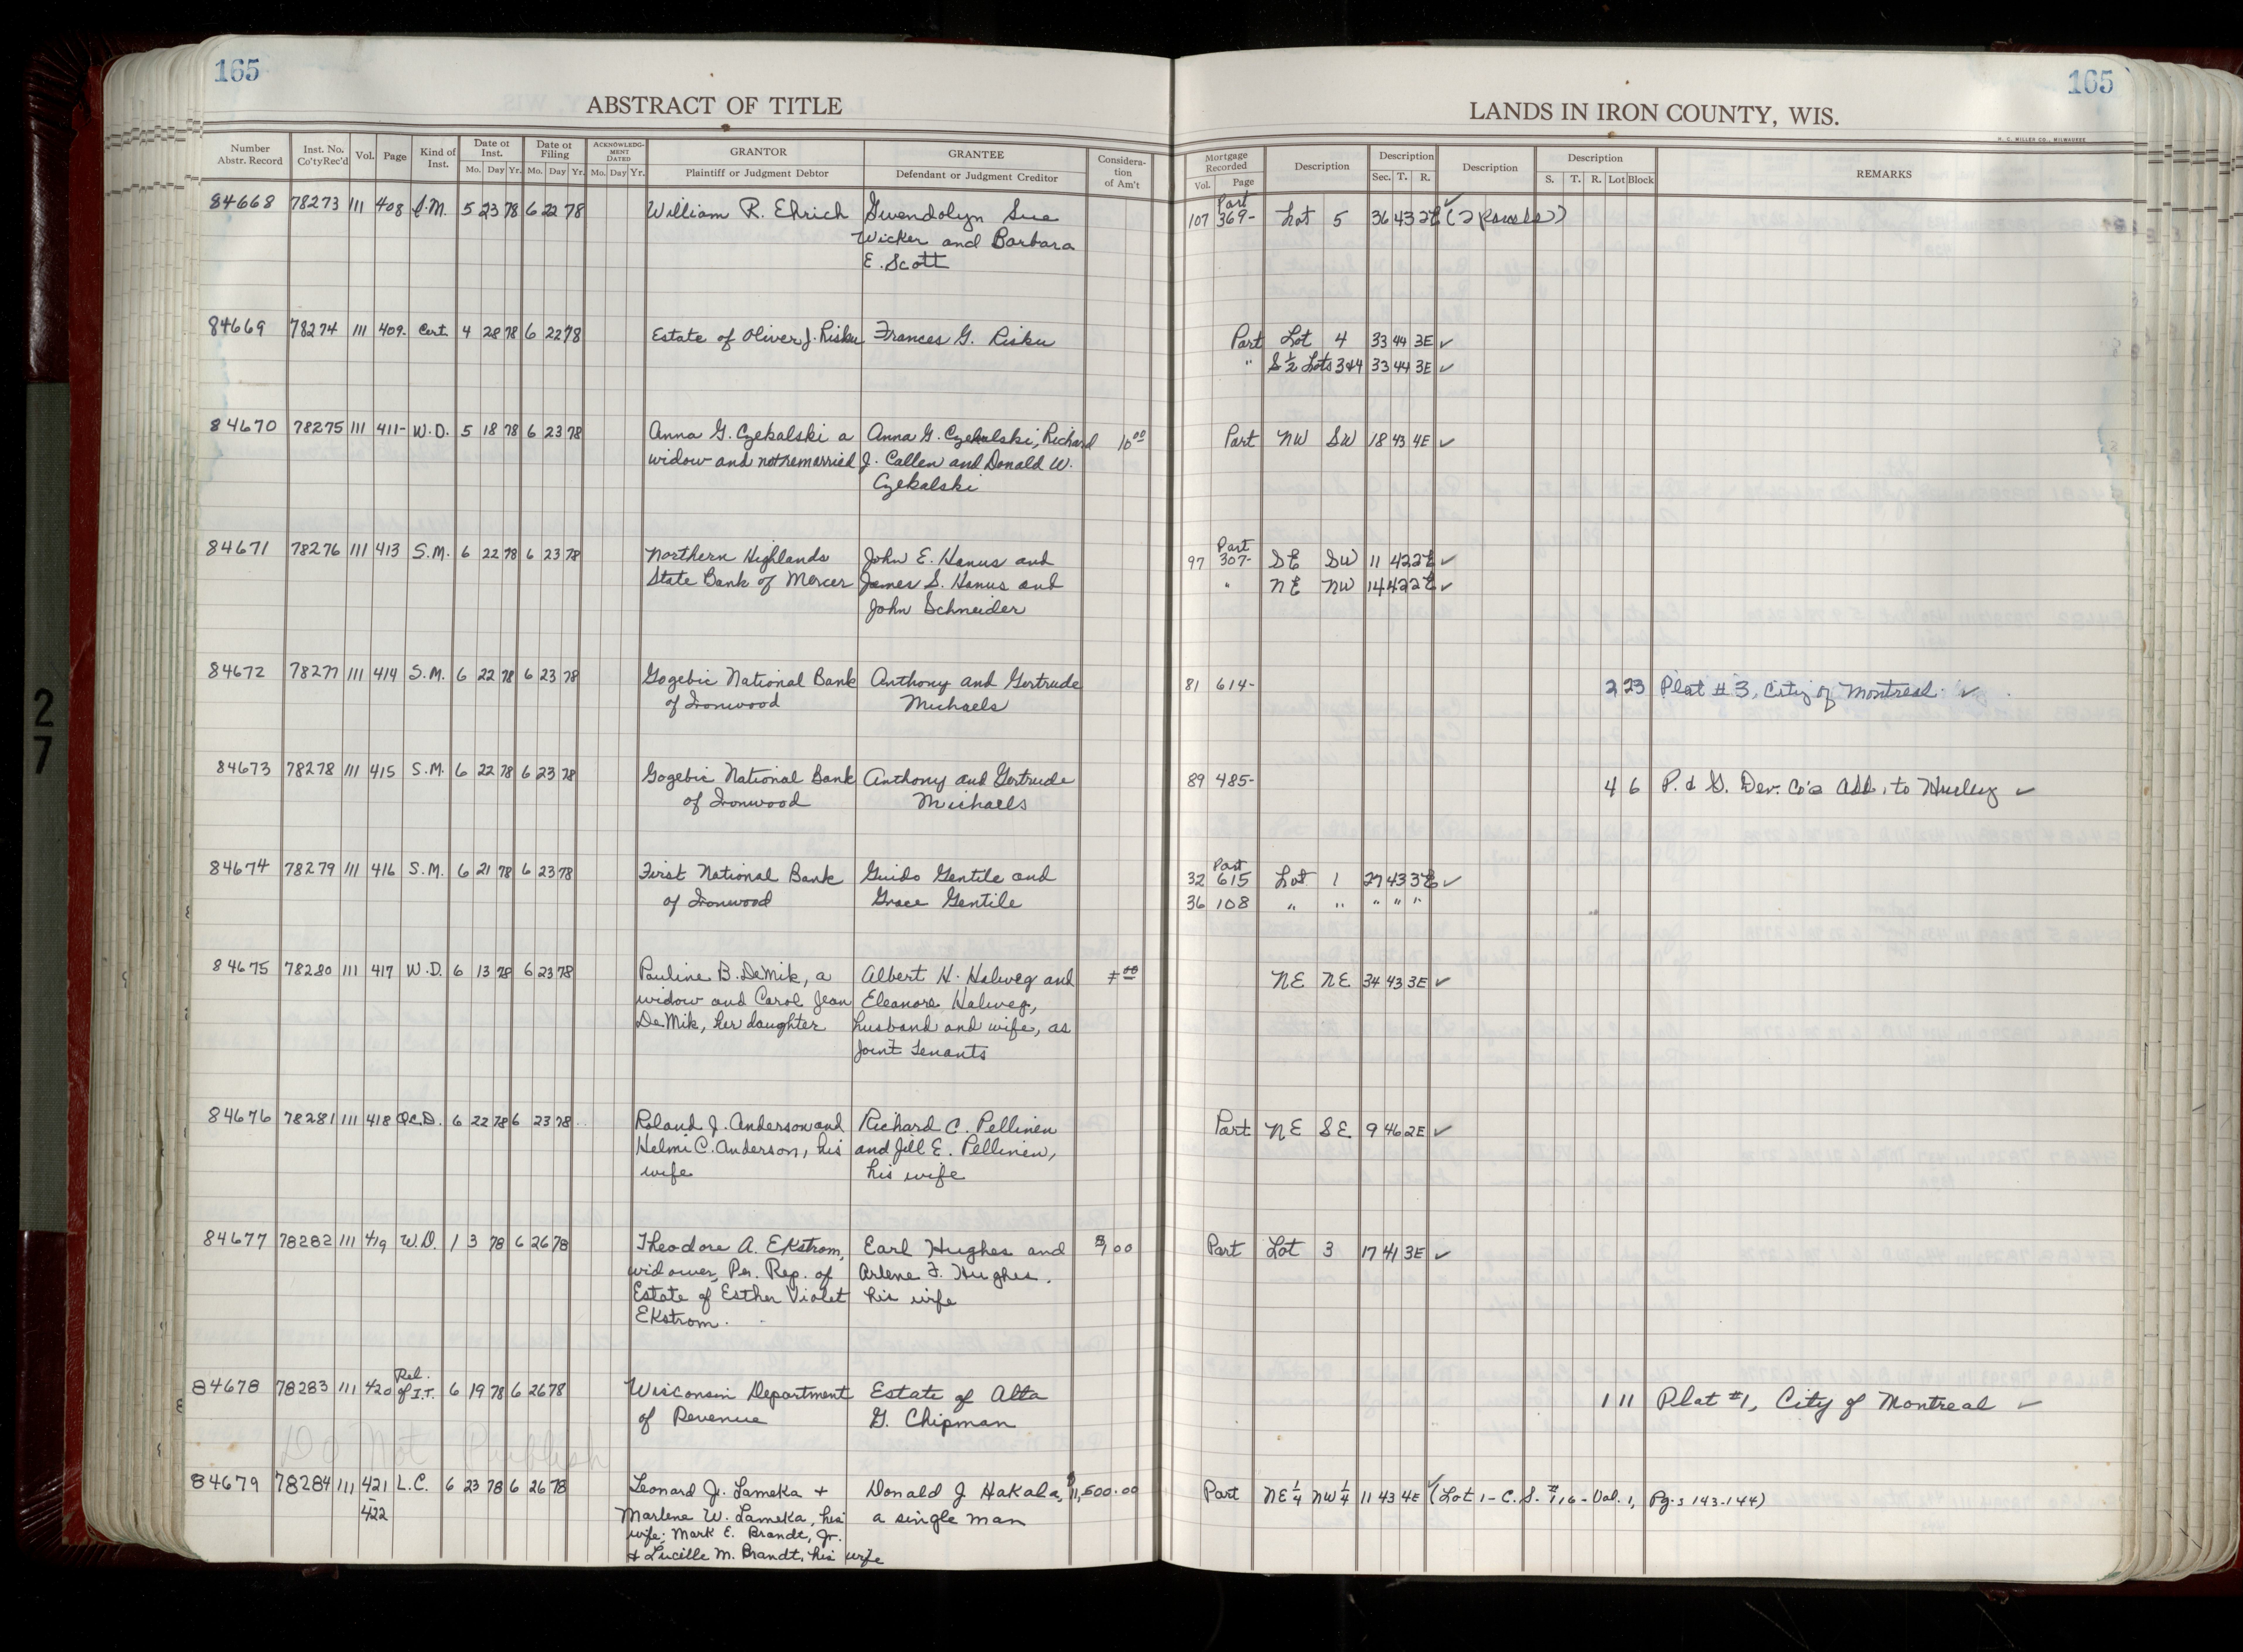 165
165
ABSTRACT OF TITLE
LANDS IN IRON COUNTY, WIS.
H. C. MILLER CO., MILWAUKEE
Number Abstr. Record Inst. No. Co'ty Rec'd Vol. Page Kind of Inst. Date of Inst. Mo. Day Yr. Date of Filing Mo. Day Yr. ACKNOWLEDGMENT DATED Mo. Day Yr. GRANTOR Plaintiff or Judgment Debtor GRANTEE Defendant or Judgment Creditor Consideration of Am't Mortgage Recorded Vol. Page Description Description Sec. T. R. Description Description S. T. R. Lot Block REMARKS
84668 78273 111 408 S.M. 5 23 78 6 22 78 William R. Ehrich Gwendolyn Sue 107 Part 369- Lot 5 36 43 2E ✓ (2 Parcels)
Wicker and Barbara
E. Scott
84669 78274 111 409- Cert. 4 28 78 6 22 78 Estate of Oliver J. Risku Frances G. Risku Part Lot 4 33 44 3E ✓
" S½ Lots 3&4 33 44 3E ✓
84670 78275 111 411- W.D. 5 18 78 6 23 78 Anna G. Czekalski a Anna G. Czekalski, Richard 10.00 Part NW SW 18 43 4E ✓
widow and not remarried J. Callen and Donald W.
Czekalski
84671 78276 111 413 S.M. 6 22 78 6 23 78 Northern Highlands John E. Hanus and 97 Part 307- SE SW 11 42 2E ✓
State Bank of Mercer James S. Hanus and " NE NW 14 42 2E ✓
John Schneider
84672 78277 111 414 S.M. 6 22 78 6 23 78 Gogebic National Bank Anthony and Gertrude 81 614- 2 23 Plat #3, City of Montreal ✓
of Ironwood Michaels
84673 78278 111 415 S.M. 6 22 78 6 23 78 Gogebic National Bank Anthony and Gertrude 89 485- 4 6 P. & G. Dev. Co's Add. to Hurley ✓
of Ironwood Michaels
84674 78279 111 416 S.M. 6 21 78 6 23 78 First National Bank Guido Gentile and 32 Part 615 Lot 1 27 43 3E ✓
of Ironwood Grace Gentile 36 108 " " " " "
84675 78280 111 417 W.D. 6 13 78 6 23 78 Pauline B. DeMik, a Albert H. Halweg and NE NE 34 43 3E ✓
widow and Carol Jean Eleanore Halweg,
DeMik, her daughter husband and wife, as
Joint Tenants
84676 78281 111 418 Q.C.D. 6 22 78 6 23 78 Roland J. Anderson and Richard C. Pellinen Part NE SE 9 46 2E ✓
Helmi C. Anderson, his and Jill E. Pellinen,
wife his wife
84677 78282 111 419 W.D. 1 3 78 6 26 78 Theodore A. Ekstrom, Earl Hughes and Part Lot 3 17 41 3E ✓
widower, Per. Rep. of Arlene F. Hughes,
Estate of Esther Violet his wife
Ekstrom.
84678 78283 111 420 Rel. of I.T. 6 19 78 6 26 78 Wisconsin Department Estate of Alta 1 11 Plat #1, City of Montreal ✓
of Revenue G. Chipman
Do Not Publish
84679 78284 111 421-422 L.C. 6 23 78 6 26 78 Leonard J. Lameka + Donald J Hakala, $11,500.00 Part NE¼ NW¼ 11 43 4E ✓ (Lot 1 - C. S. Vol. 1, Pgs 143-144)
Marlene W. Lameka, his a single man
wife; Mark E. Brandt, Jr.
+ Lucille M. Brandt, his wife
27